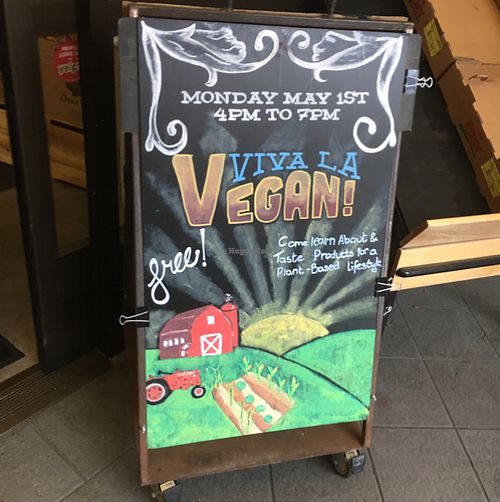 MONDAY MAY 1ST
4PM TO 7PM
VIVA LA
VEGAN!
free!
Come learn About &
Taste Products for a
Plant-Based lifestyle